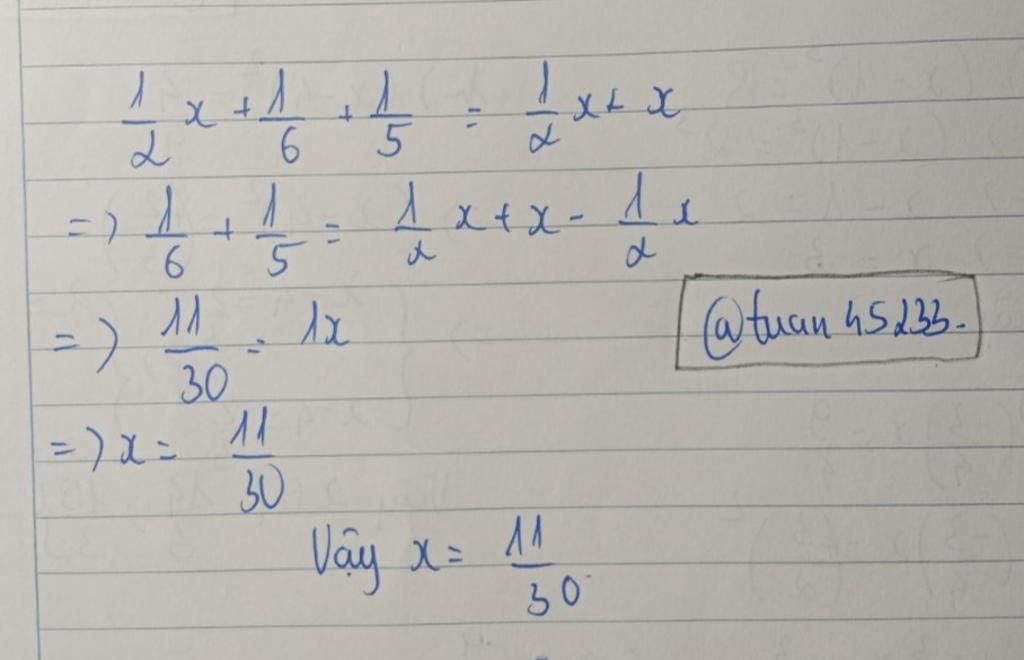 1/2 x + 1/6 + 1/5 = 1/2 x + x
=> 1/6 + 1/5 = 1/2 x + x - 1/2 x
=> 11/30 = 1x
@tuan45233.
=> x = 11/30
Vậy x = 11/30